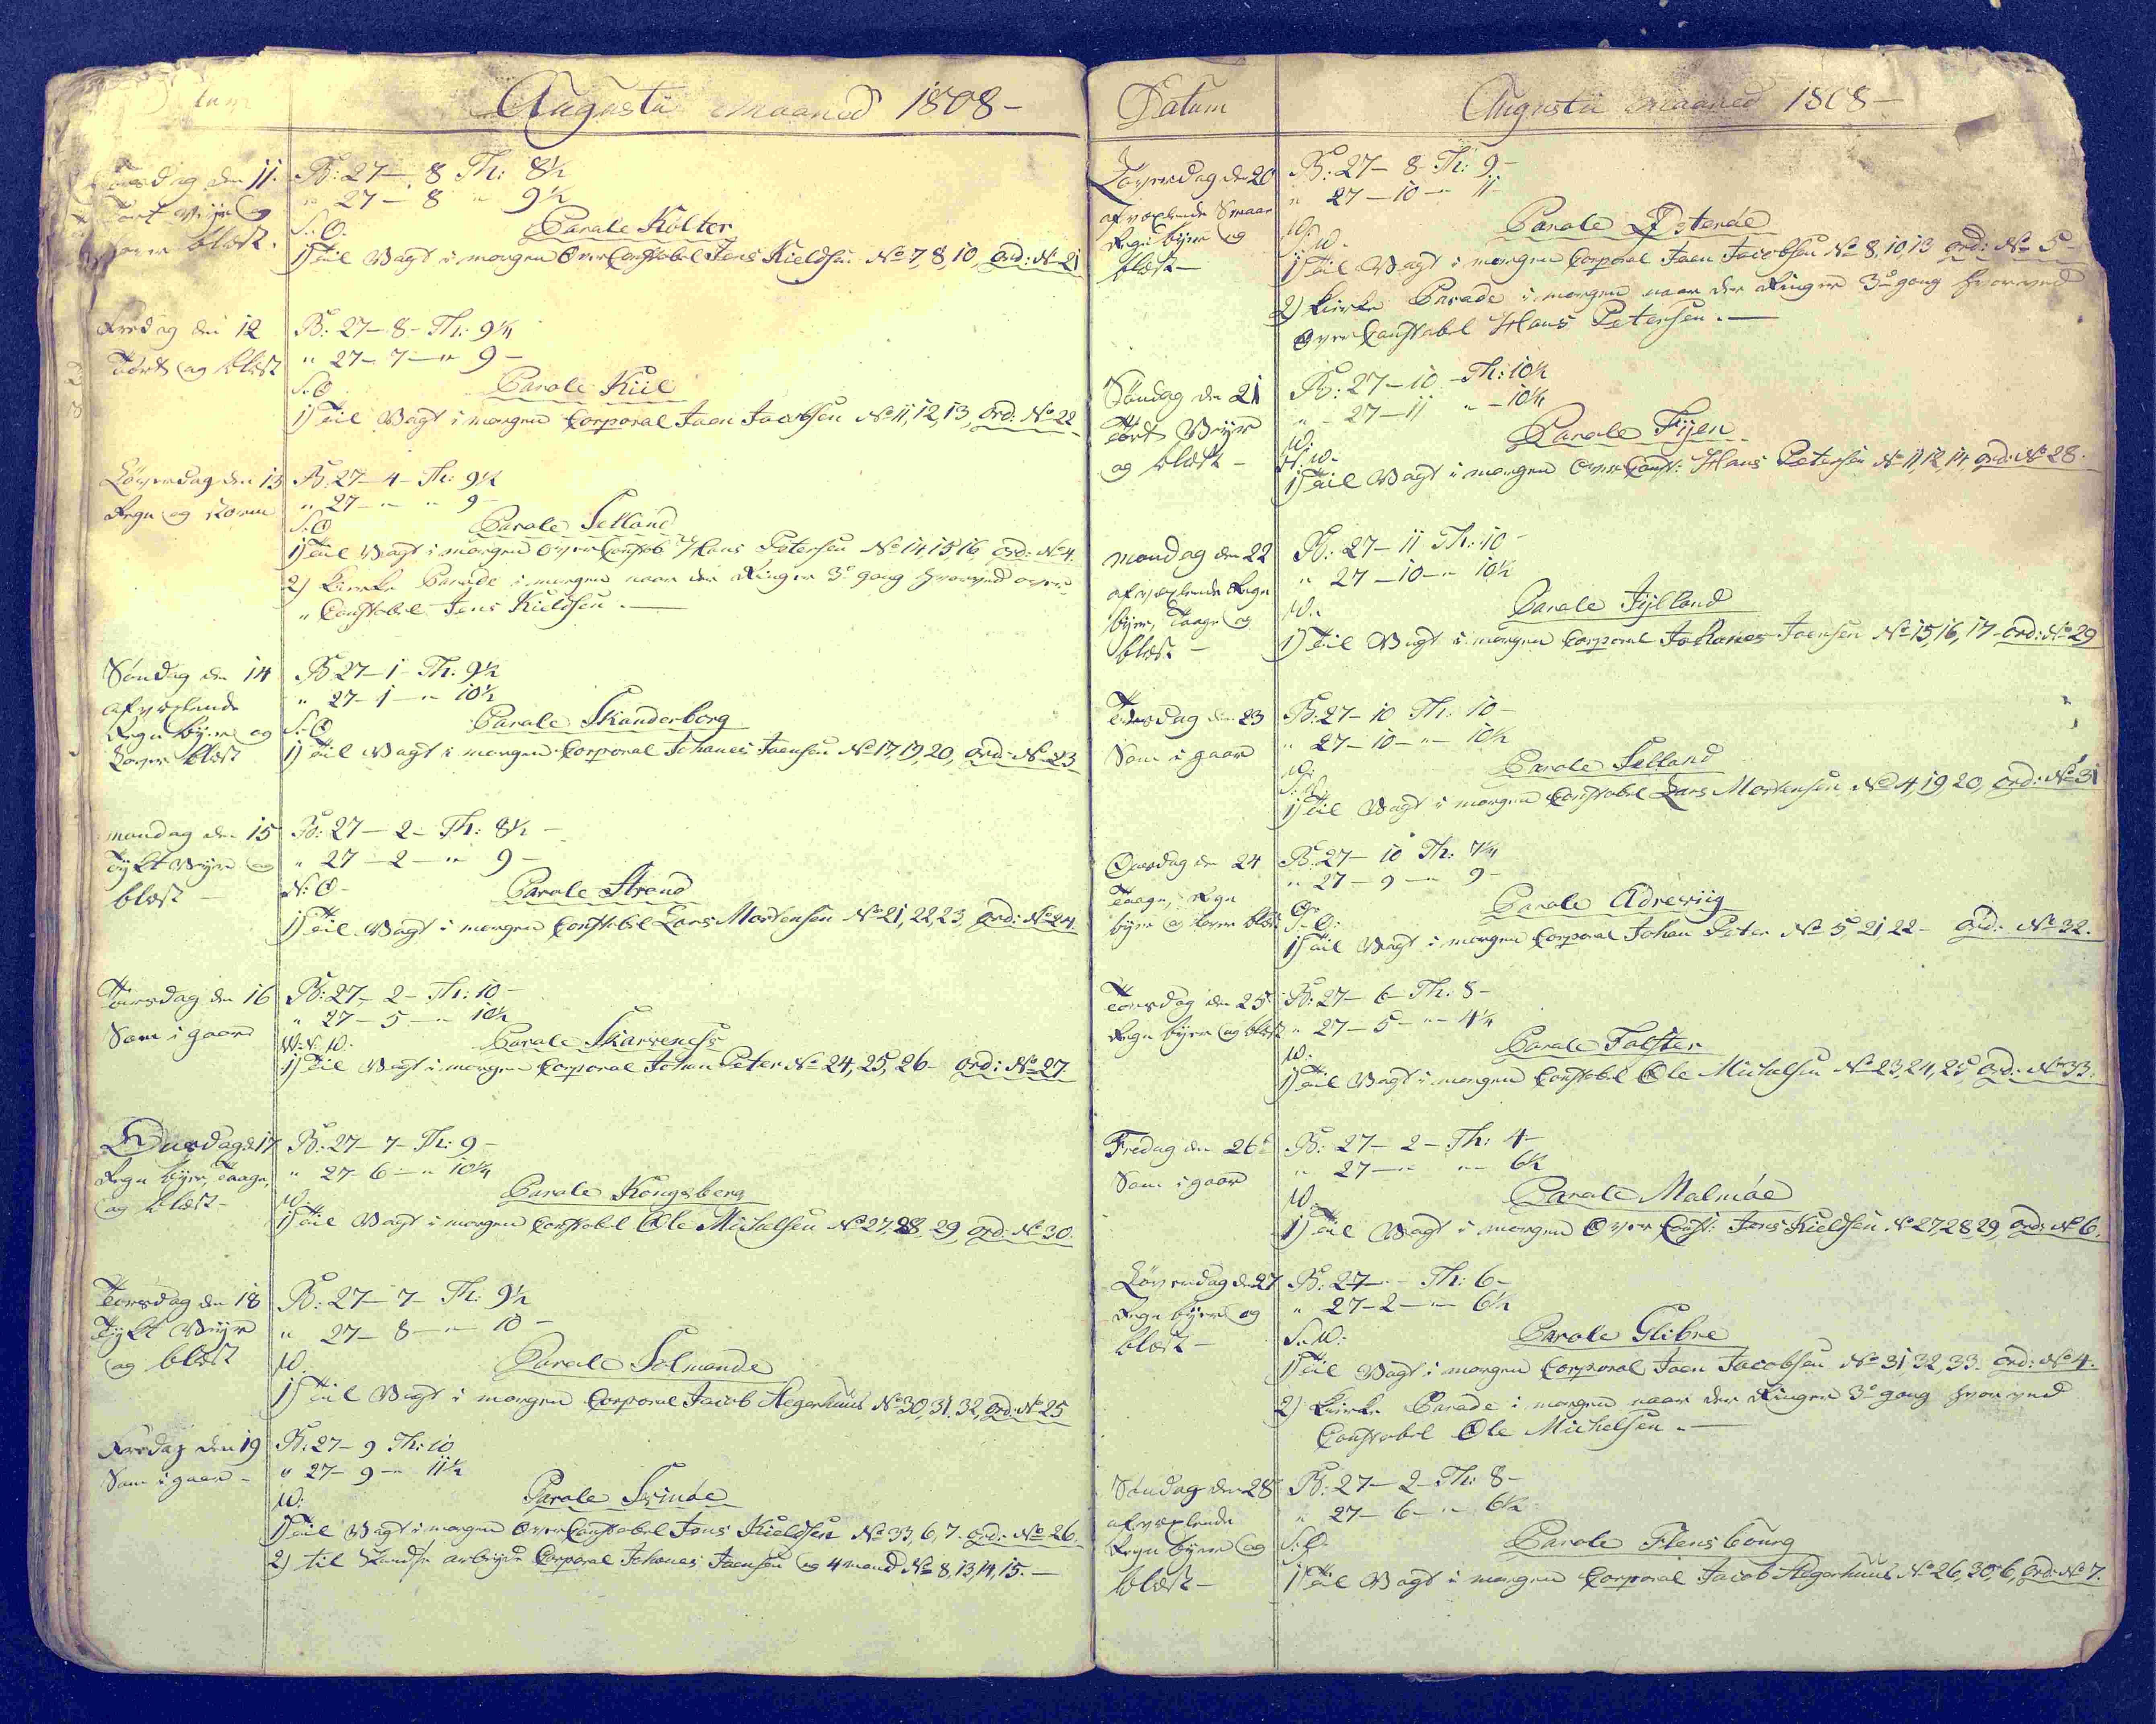 Augusti Maaned 1808 -
Torsdag den 11. B: 27 - 8 Th: 8½
Tört Vejr og " 27 - 8 " 9½
blæst. S:O. Parole Kolter
1) Til Vagt i morgen Over Constabel Jens Kieldsen No 7, 8, 10, Ord: No 21
Fredag den 12 B: 27 - 8 - Th: 9¼
Tört og blæst " 27 - 7 - " 9 -
S:O Parole Kiil
1) Til Vagt i morgen Corporal Joen Jacobsen No 11, 12, 13, Ord: No 22
Löverdag den 13 B: 27 - 4 - Th: 9½
Regn og Storm " 27 - " - " 9 -
S:O Parole Selland
1) Til Vagt i morgen Over Constab: Hans Petersen No 14 15 16 Ord: No 4.
2) Kirke Parade i morgen naar der Ringer 3de gang hvorved over
" Constabel Jens Kieldsen . -
Söndag den 14 B: 27 - 1 - Th: 9½
afvexlende " 27 - 1 - " 10½
Regn byer og S:O Parole Skanderborg
blæst 1) Til Vagt i morgen Corporal Johanes Joensen No 17, 19, 20, Ord: No 23
mandag den 15 B: 27 - 2 - Th: 8½ -
Tykt Vejr og " 27 - 2 - " 9 -
blæst - N:O - Parole Strand
1) Til Vagt i morgen Constabel Lars Mortensen No 21, 22, 23, Ord: No 24.
Tirsdag den 16 B: 27 - 2 - Th: 10 -
Som i gaar " 27 - 5 - " 10½
W:N:W. Parole Skarreness
1) Til Vagt i morgen Corporal Johan Peter No 24, 25, 26 - Ord: No 27
Onsdag d: 17 B: 27 - 7 - Th: 9 -
Regn byer, Taage, " 27 - 6 - " 10¼
og blæst - W. Parole Kongsberg
1) Til Vagt i morgen Constabel Ole Michelsen No 27, 28, 29, Ord: No 30.
Torsdag den 18 B: 27 - 7 - Th: 9½
Tykt Vejr " 27 - 8 - " 10 -
og blæst W. Parole Solmunde
1) Til Vagt i morgen Corporal Jacob Hegerhuus No 30, 31, 32, Ord: No 25
Fredag den 19 B: 27 - 9 Th: 10
Som i gaar - " 27 - 9 - " 11½
W: Parole Svinöe
1) Til Vagt i morgen Over Constabel Jens Kieldsen No 33, 6, 7 - Ord: No 26.
2) til arbejde Corporal Johanes Joensen og 4 mand No 8, 13, 14, 15. -
Datum Augusti Maaned 1808 -
Löverdag den 20 B: 27 - 8 - Th: 9 -
afvexlende Smaa " 27 - 10 - " 11 -
Regn byer og W. Parole
blæst - S:W.
1) Til Vagt i morgen Corporal Joen Jacobsen No 8, 10, 13 Ord: No 5 -
2) Kirke Parade i morgen naar der Ringer 3de gang hvorved
Over Constabel Hans Petersen . -
Söndag den 21 B: 27 - 10 - Th: 10½
Tört Vejr " 27 - 11 " - 10¼
og blæst - W: Parole Fyen
1) Til Vagt i morgen Over Const: Hans Petersen No 11, 12, 14, Ord: No 28.
mandag den 22 B: 27 - 11 Th: 10 -
afvexlende Regn " 27 - 10 - " 10½
byer, Taage og W. Parole Jylland
blæst - 1) Til Vagt i morgen Corporal Johanes Joensen No 15, 16, 17 - Ord: No 29
Tirsdag den 23 B: 27 - 10 Th: 10 -
Som i gaar " 27 - 10 - " - 10½
W: Parole Selland
1) Til Vagt i morgen Constabel Lars Mortensen No 4, 19, 20, Ord: No 31
Onsdag den 24 B: 27 - 10 Th: 7¼
Taage, Regn " 27 - 9 - " 9 -
byer og blæst O. Parole Adrewiig
S:O:
1) Til Vagt i morgen Corporal Johan Peter No 5, 21, 22 - Ord: No 32.
Torsdag den 25 B: 27 - 6 - Th: 8 -
Regn byer og blæst " 27 - 5 - " - 4¼
W: Parole Falster
1) Til Vagt i morgen Constabel Ole Michelsen No 23, 24, 25 Ord: No 33.
Fredag den 26 B: 27 - 2 - Th: 4 -
Som i gaar " 27 - " " - 6½
W. Parole Malmöe
1) Til Vagt i morgen Over Const: Jens Kieldsen No 27, 28 29, Ord: No 6.
Löverdag den 27 B: 27 - " - Th: 6 -
Regn byer og " 27 - 2 - " 6½
blæst - S:W: Parole Glibre
1) Til Vagt i morgen Corporal Joen Jacobsen No 31, 32, 33 - Ord: No 4.
2) Kirke Parade i morgen naar der Ringer 3de gang hvorved
Constabel Ole Michelsen . -
Söndag den 28 B: 27 - 2 - Th: 8 -
afvexlende " 27 - 6 - " 6½
Regn byer og S:O. Parole Flensbourg
blæst - 1) Til Vagt i morgen Corporal Jacob Hegerhuus No 26, 30, 6, Ord: No 7.